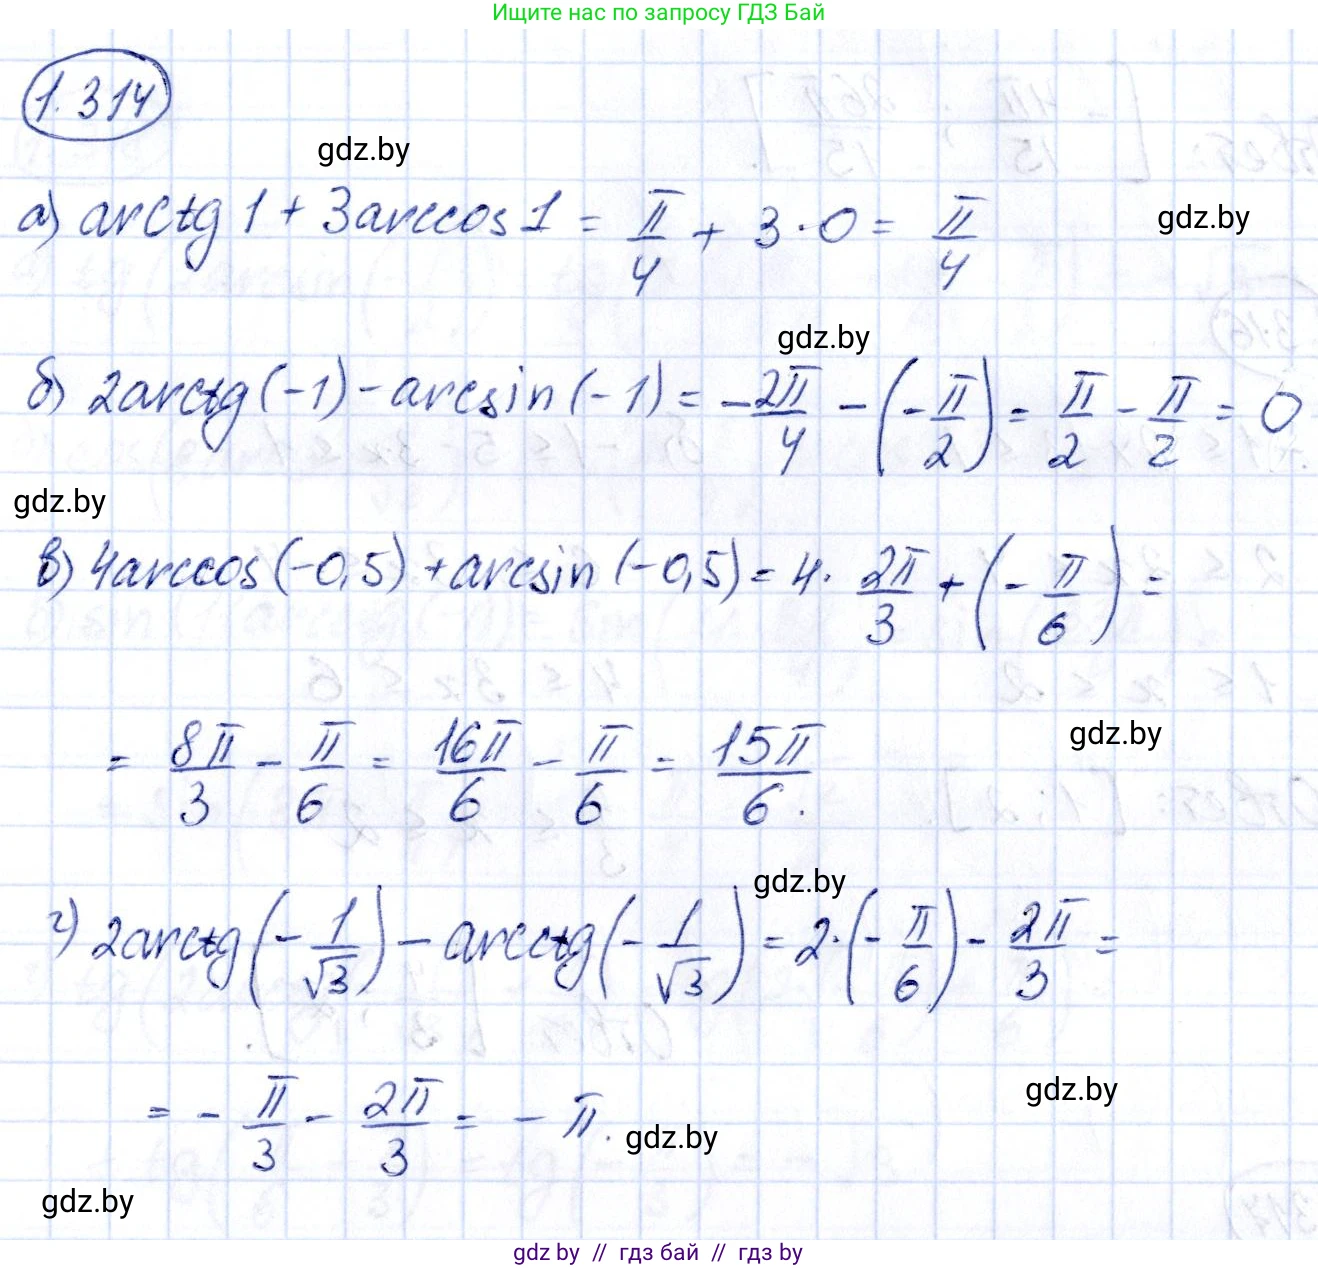 Ищите нас по запросу ГДЗ Бай
1.314
gdz.by
а) arctg 1 + 3 arccos 1 = π/4 + 3 · 0 = π/4
gdz.by
gdz.by
б) 2arctg(-1) - arcsin(-1) = -2π/4 - (-π/2) = π/2 - π/2 = 0
gdz.by
в) 4arccos(-0,5) + arcsin(-0,5) = 4 · 2π/3 + (-π/6) =
= 8π/3 - π/6 = 16π/6 - π/6 = 15π/6.
gdz.by
gdz.by
г) 2arctg(-1/√3) - arcctg(-1/√3) = 2·(-π/6) - 2π/3 =
= -π/3 - 2π/3 = -π.
gdz.by
gdz.by
gdz.by
gdz by // гдз бай // gdz by